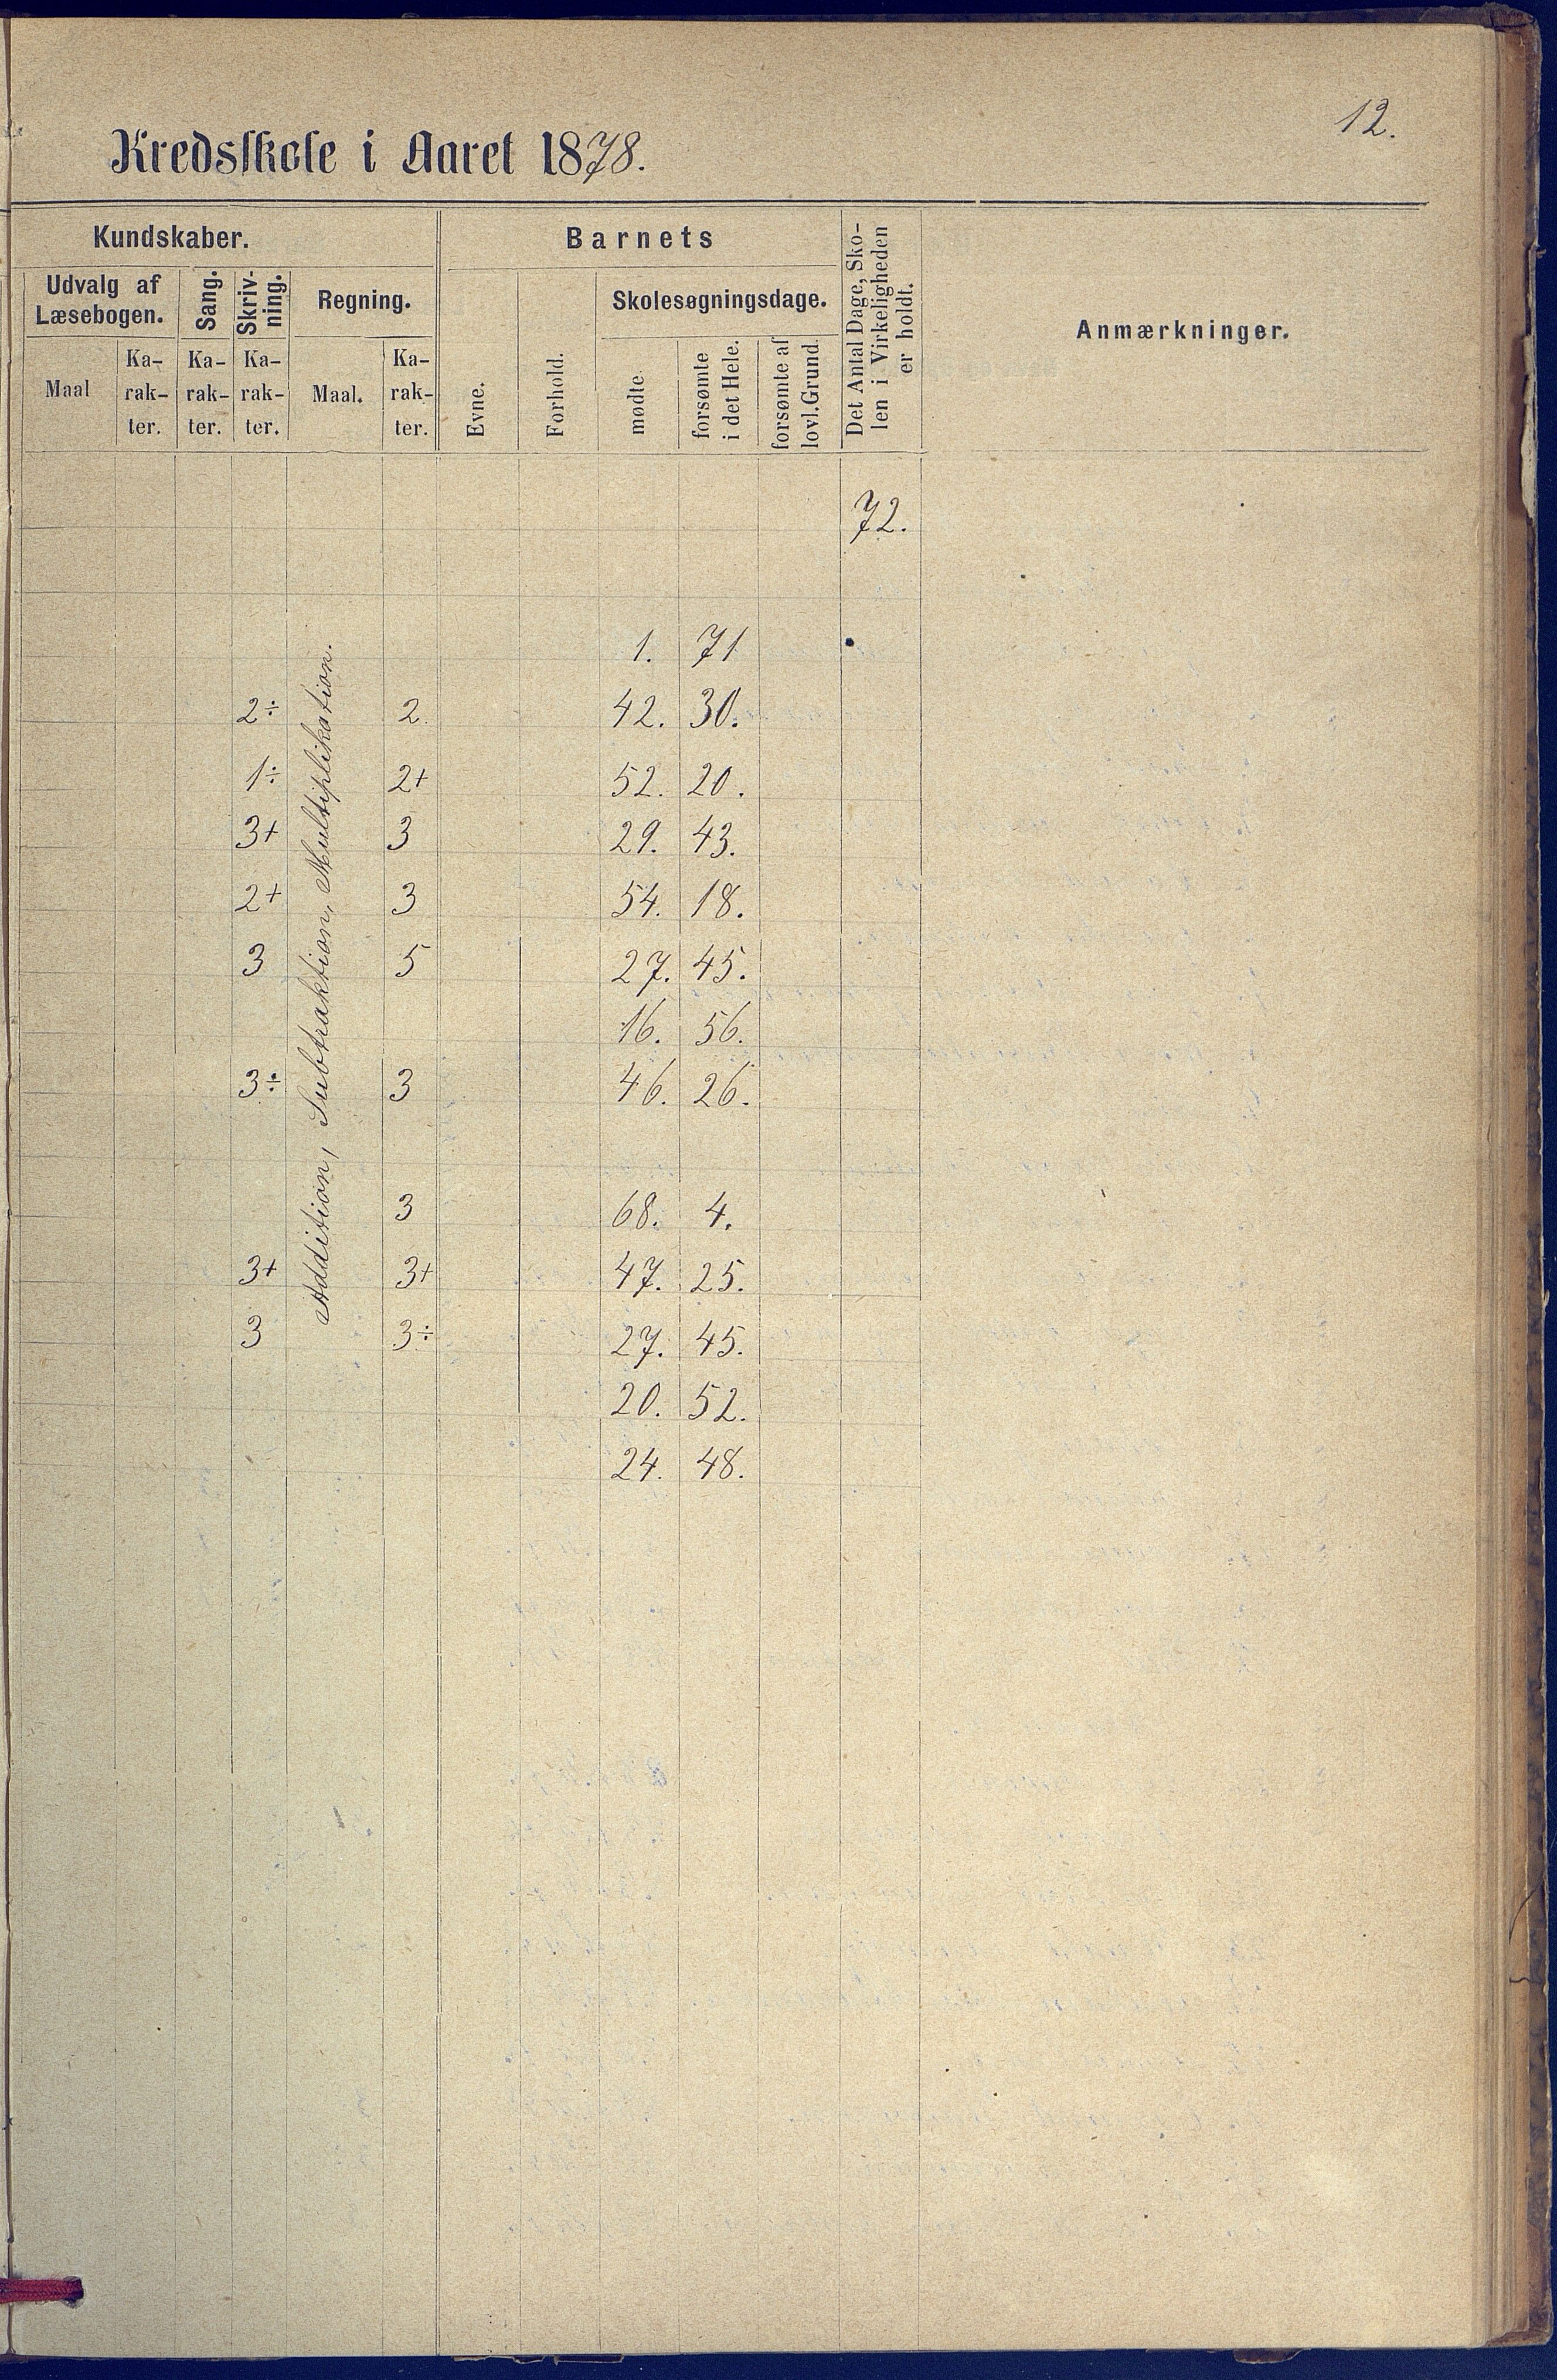 12.
Kredsskole i Aaret 1878.
Kundskaber.
Barnets
Det Antal Dage, Sko-
len i Virkeligheden
er holdt.
Anmærkninger.
Udvalg af
Læsebogen.
Sang.
Skriv-
ning.
Regning.
Evne.
Forhold.
Skolesøgningsdage.
Maal
Ka-
rak-
ter.
Ka-
rak-
ter.
Ka-
rak-
ter.
Maal.
Ka-
rak-
ter.
mødte.
forsømte
i det Hele.
forsømte af
lovl. Grund.
72.
Addition, Subtraktion, Multiplikation.
1. 71
2÷ 2. 42. 30.
1÷ 2+ 52. 20.
3+ 3 29. 43.
2+ 3 54. 18.
3 5 27. 45.
16. 56.
3÷ 3 46. 26.
3 68. 4.
3+ 3+ 47. 25.
3 3÷ 27. 45.
20. 52.
24. 48.